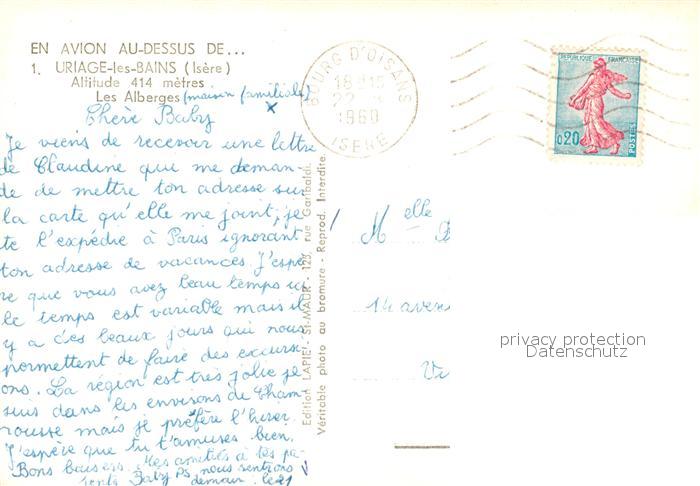 EN AVION AU-DESSUS DE...
1. URIAGE-les-BAINS (Isère)
Altitude 414 mètres
Les Alberges (maison familiale)
x
Chère Baby
Je viens de recevoir une lettre
de Claudine qui me deman-
de de mettre ton adresse sur
la carte qu'elle me joint; je
te l'expédie à Paris ignorant
ton adresse de vacances. J'espè
re que vous avez beau temps ici
le temps est variable mais il
y a des beaux jours qui nous
permettent de faire des excursi
ons. La région est très jolie je
suis dans les environs de Cham
rousse mais je préfère l'hiver.
J'espère que tu t'amuses bien.
Bons baisers. Mes amitiés à tes pa-
rents Baby PS nous rentrons
demain. le 21
Edition LAPIE - ST-MAUR - 125, rue Garibaldi.
Véritable photo au bromure - Reprod. Interdite.
BOURG D'OISANS
18H
1960
ISERE
REPUBLIQUE FRANÇAISE
0,20
POSTES
Melle
14 aven
privacy protection
Datenschutz